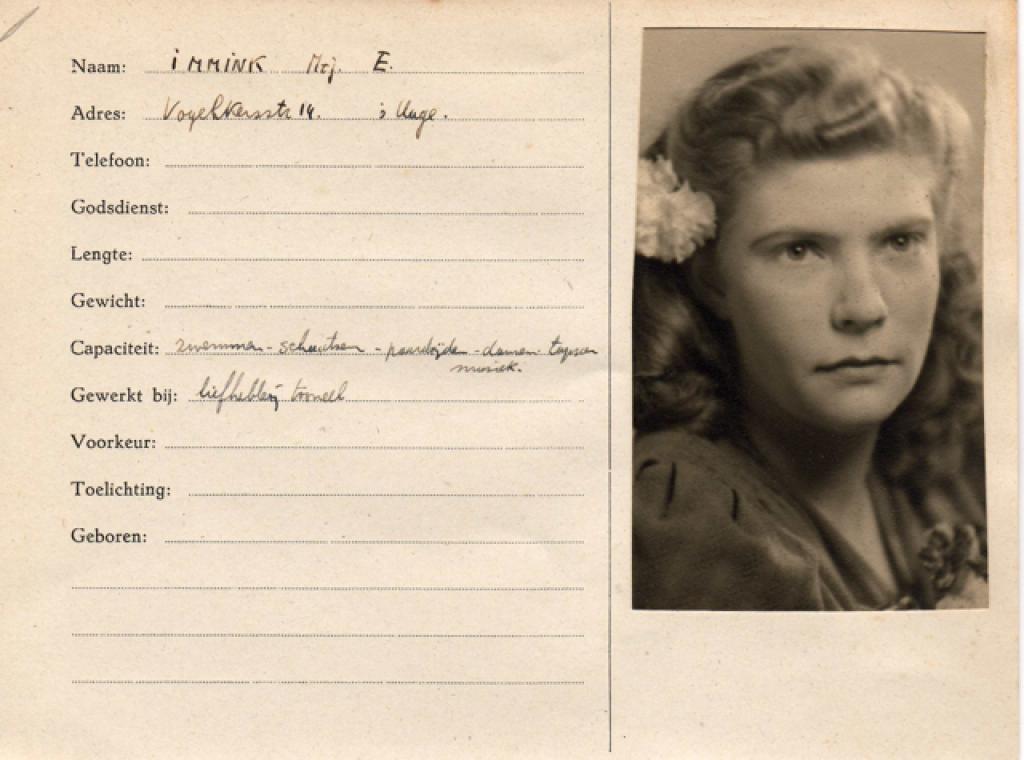 Naam: IMMINK Mej. E.
Adres: Vogelkersstr 14. 's Hage.
Telefoon:
Godsdienst:
Lengte:
Gewicht:
Capaciteit: zwemmen - schaatsen - paardrijden - dansen
muziek.
Gewerkt bij: liefhebberij toneel
Voorkeur:
Toelichting:
Geboren: